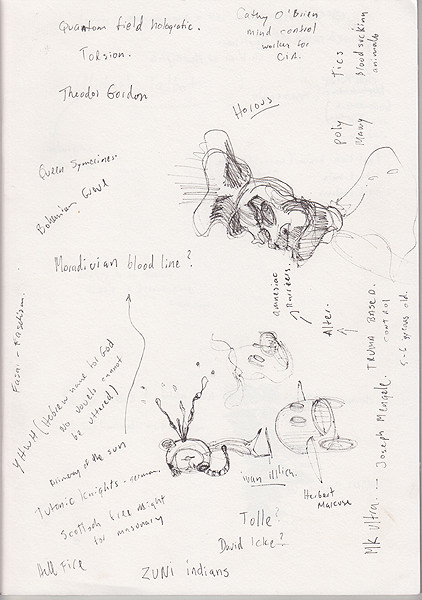 Quantum field holografic.
Torsion.
Theodor Gordon
Cathy O'Brien
mind control
worker for
CIA.
Tics
bloodsucking
animals
Poly
Many
Horous
Queen
Bohemian
Merodivian blood line?
amnesiac
Barriers.
Alter.
TRUMA BASED.
CONTROL
5-6 years old.
MK Ultra. --- Joseph Mengele.
Fasci - Faschism.
YHWH (Hebrew name for God
so vowels cannot
be uttered)
of the sun
Tutonic Knights - german.
Scottish free
for masonary
Hell Fire
ZUNI indians
ivan illich.
Herbert
Marcuse
Tolle?
David Icke?